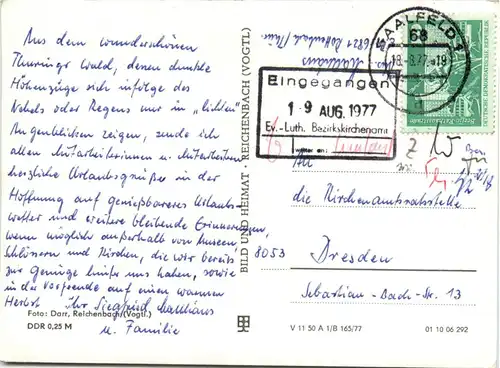 Aus dem wunderschönen
Thüringer Wald, dessen dunkle
Höhenzüge sich infolge des
Nebels oder Regens nur in „lichten"
Augenblicken zeigen, sende ich
allen Mitarbeiterinnen und Mitarbeitern
herzliche Urlaubsgrüße in der
Hoffnung auf genießbareres Urlaubs-
wetter und weitere bleibende Erinnerungen,
wenn möglich außerhalb von Museen,
Schlössern und Kirchen, die wir bereits
zur Genüge hinter uns haben, sowie
in der Vorfreude auf einen warmen
Herbst Ihr Siegfried Matthäus
u. Familie
Foto: Darr, Reichenbach (Vogtl.)
DDR 0,25 M
BILD UND HEIMAT · REICHENBACH (VOGTL)
6821 Rottenbach / Thür.
SAALFELD 1
68
18.-8.77.-19
DEUTSCHE DEMOKRATISCHE REPUBLIK
Eingegangen
19 AUG. 1977
Ev.-Luth. Bezirkskirchenamt
An
die Kirchenamtsratsstelle
8053 Dresden
Sebastian-Bach-Str. 13
V 11 50 A 1/B 165/77
01 10 06 292